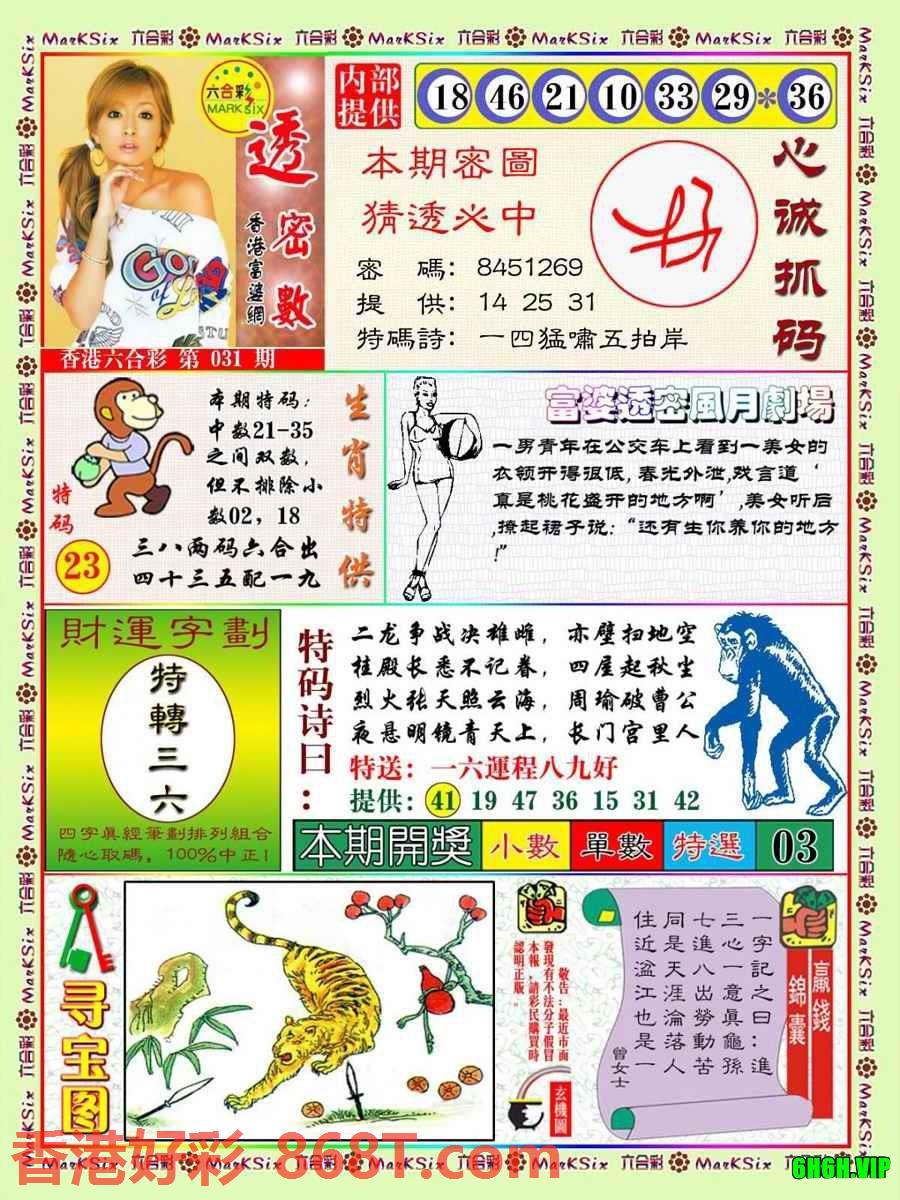 MarKSix 六合彩 MarKSix 六合彩 MarKSix 六合彩 MarKSix 六合彩 MarKSix 六合彩
六合彩
MARK six
透密數
香港富婆網
香港六合彩 第 031 期
内部
提供
18 46 21 10 33 29 * 36
本期密圖
猜透必中
密 碼: 8451269
提 供: 14 25 31
特碼詩: 一四猛嘯五拍岸
心诚抓码
特码
23
本期特码:
中数21-35
之间双数,
但不排除小
数02, 18
三八两码六合出
四十三五配一九
生肖特供
富婆透密風月劇場
一男青年在公交车上看到一美女的
衣领开得很低,春光外泄,戏言道‘
真是桃花盛开的地方啊’,美女听后
,撩起裙子说:“还有生你养你的地方
!”
財運字劃
特轉三六
四字眞經筆劃排列組合
隨心取碼, 100%中正!
特码诗曰:
二龙争战决雄雌, 亦壁扫地空
桂殿长悉不记春, 四屋起秋尘
烈火张天照云海, 周瑜破曹公
夜悬明镜青天上, 长门宫里人
特送: 一六運程八九好
提供: 41 19 47 36 15 31 42
本期開獎 小數 單數 特選 03
寻宝图
敬告:最近市面
發現有不法分子假冒
本報,請彩民購買時
認明正版。
玄機圖
一字記之曰:進
三心一意眞龜孫
七進八出勞動苦
同是天涯淪落人
住近湓江也是一
曾女士
贏錢
錦囊
香港好彩.868T.com
6H6H.VIP
MarKSix 六合彩 MarKSix 六合彩 MarKSix 六合彩 MarKSix 六合彩 MarKSix